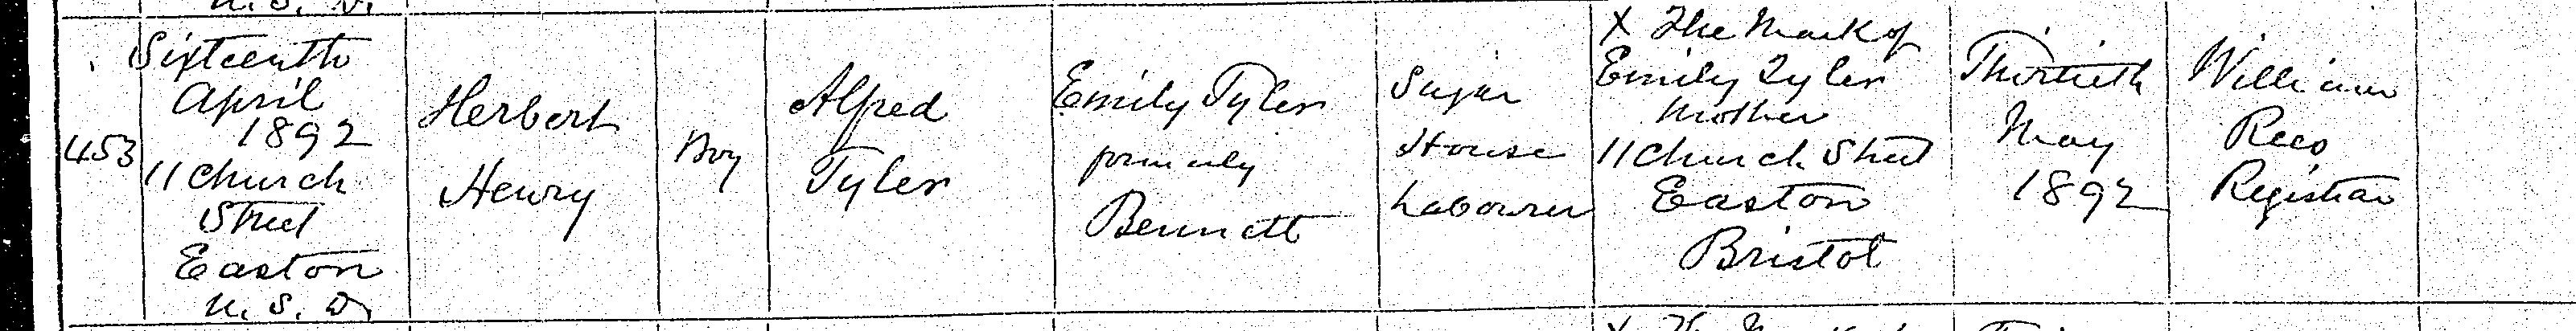 U. S. D.
Sixteenth
April
1892
11 Church
Street
Easton
U. S. D.
453
Herbert
Henry
Boy
Alfred
Tyler
Emily Tyler
formerly
Bennett
Sugar
House
Labourer
X The Mark of
Emily Tyler
Mother
11 Church Street
Easton
Bristol
Thirtieth
May
1892
William
Rees
Registrar
X The Mark of